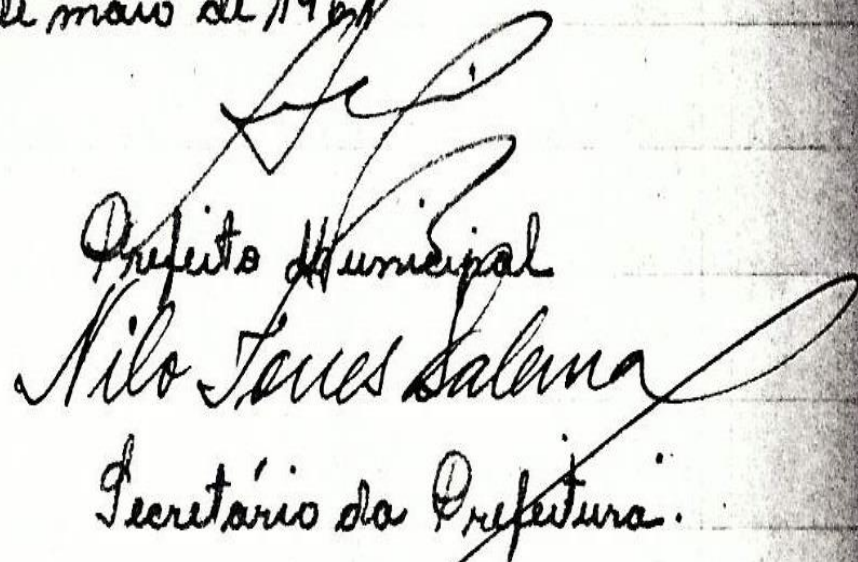 de maio de 196
Prefeito Municipal
Nilo Torres Salema
Secretário da Prefeitura.